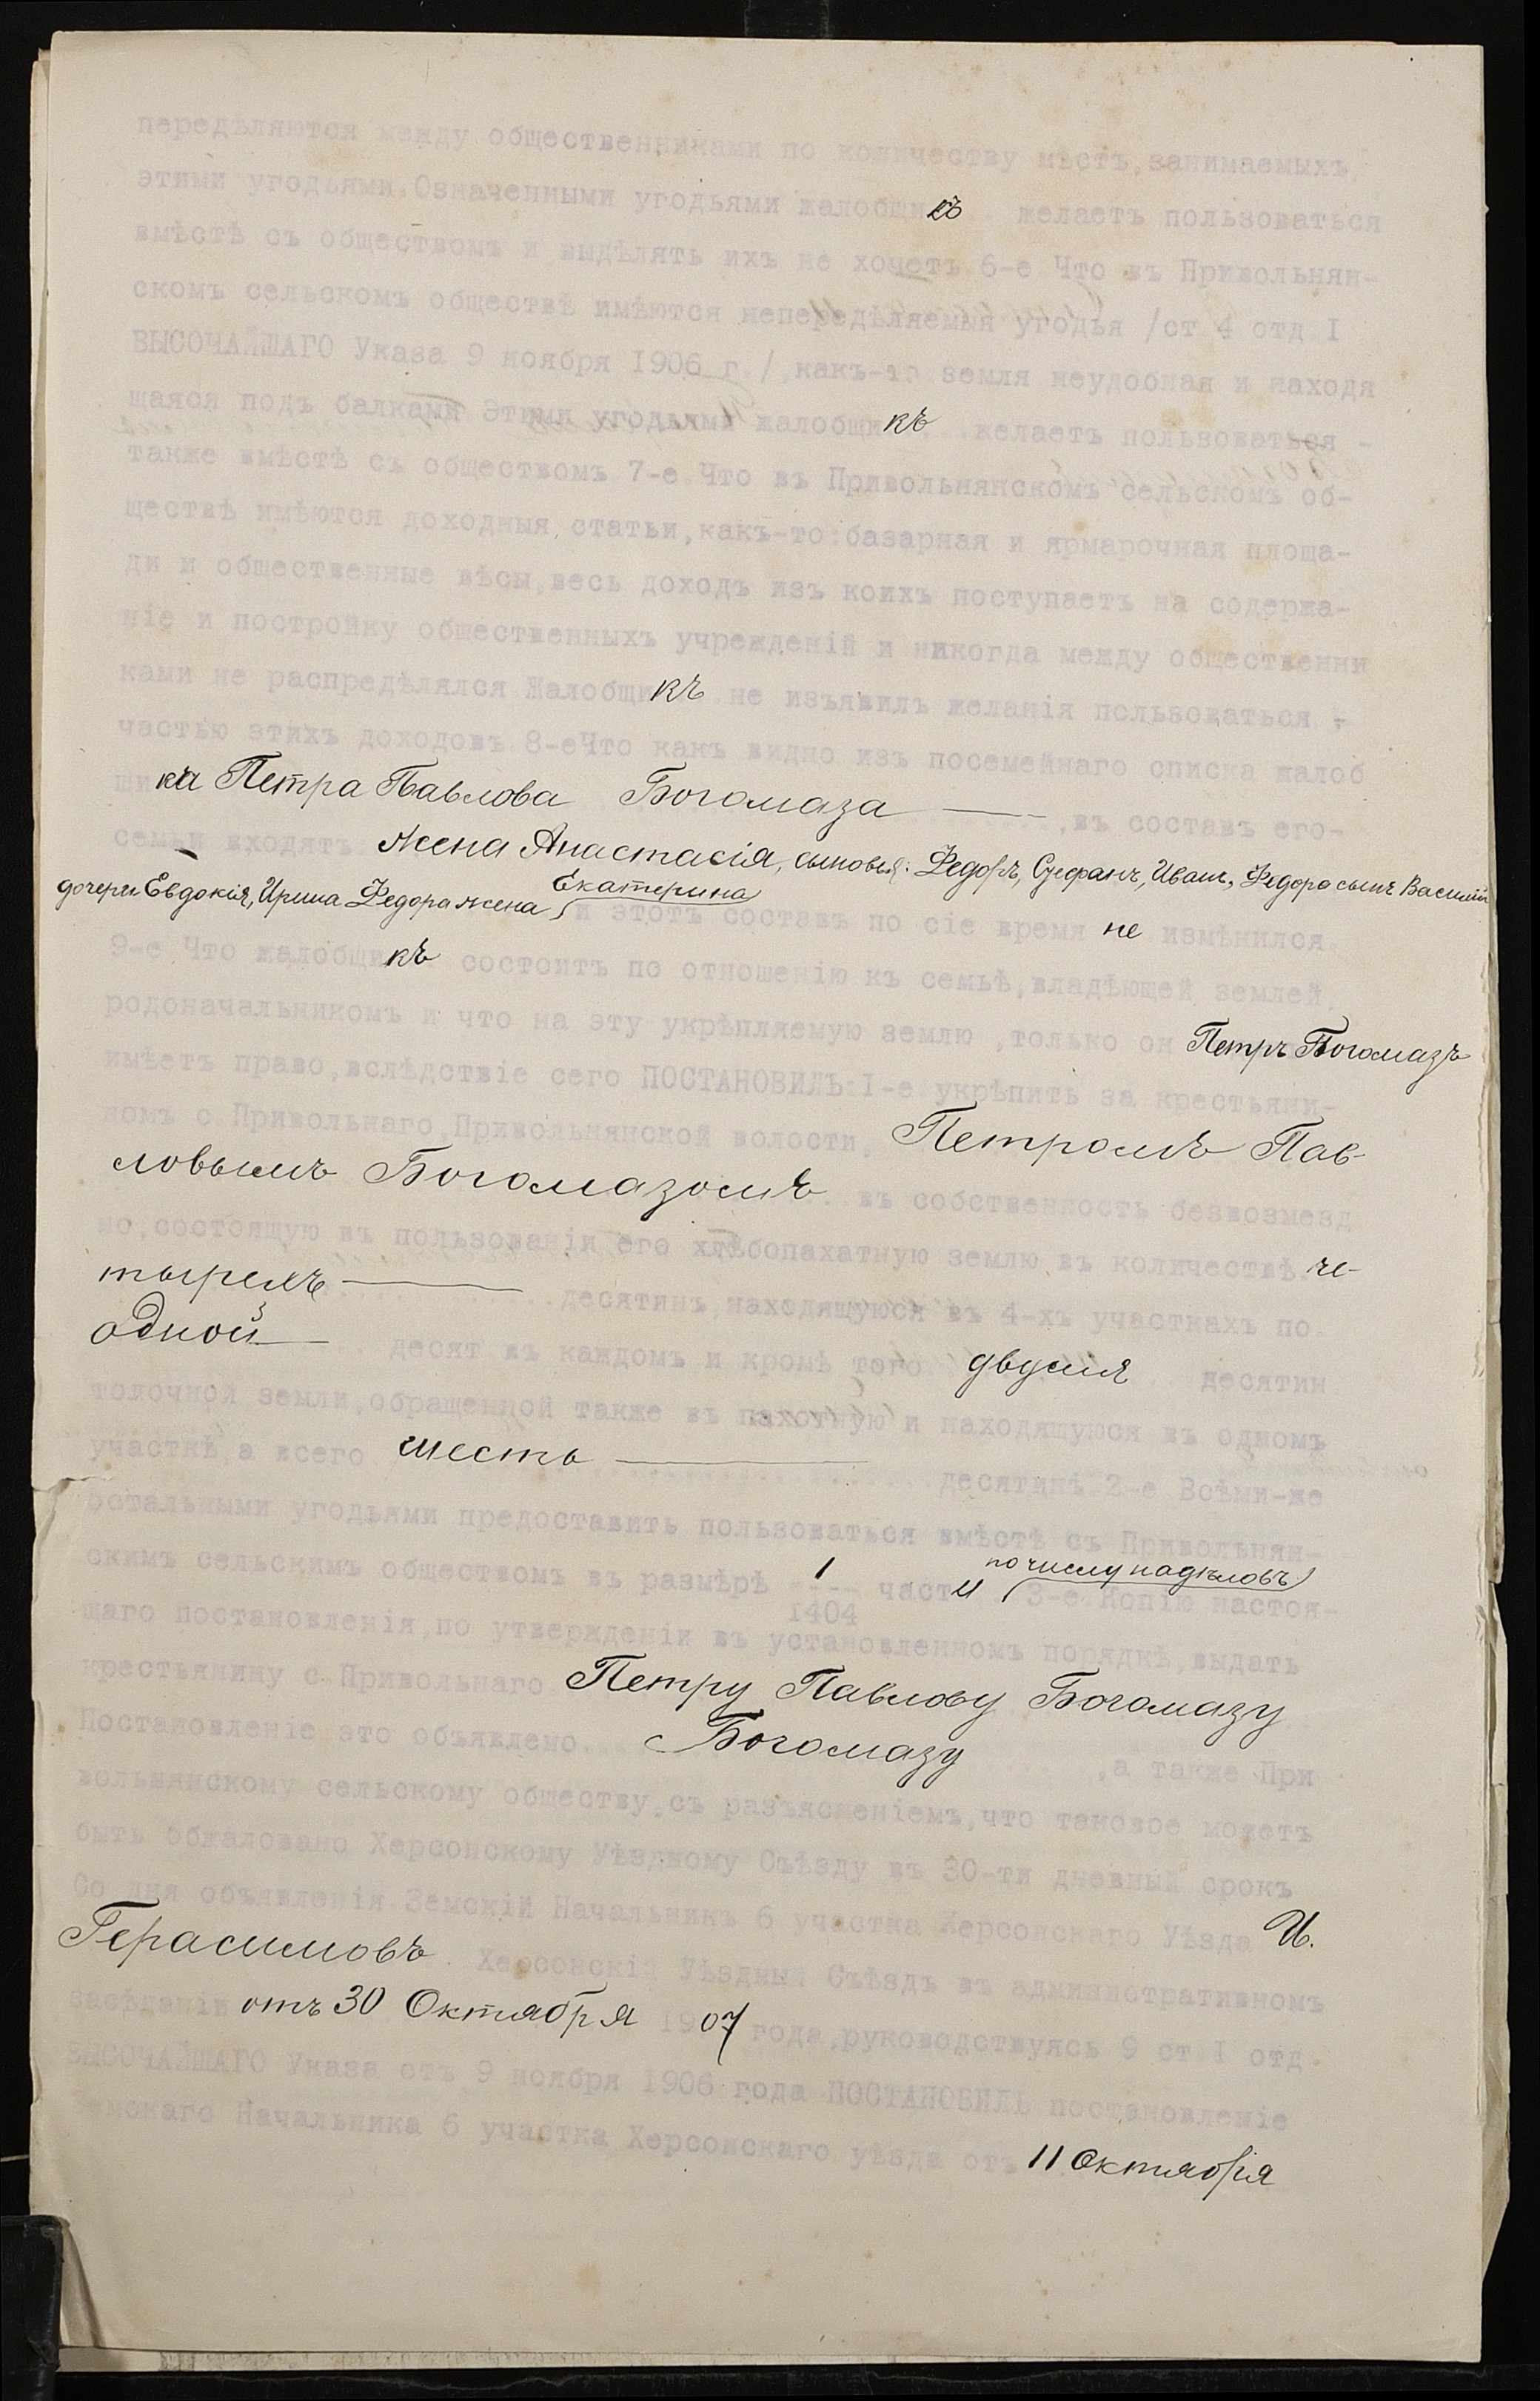 передѣляются между общественниками по количеству мѣстъ, занимаемыхъ
этими угодьями. Означенными угодьями жалобщикъ желаетъ пользоваться
вмѣстѣ съ обществомъ и выдѣлять ихъ не хочетъ 6-е Что въ Привольнян-
скомъ сельскомъ обществѣ имѣются непередѣляемыя угодья /ст 4 отд I
ВЫСОЧАЙШАГО Указа 9 ноября 1906 г./, какъ-то земля неудобная и находя
щаяся подъ балками Этими угодьями жалобщикъ желаетъ пользоваться -
также вмѣстѣ съ обществомъ 7-е Что въ Привольнянскомъ сельскомъ об-
ществѣ имѣются доходныя статьи, какъ-то: базарная и ярмарочная площа-
ди и общественные вѣсы, весь доходъ изъ коихъ поступаетъ на содержа-
ніе и постройку общественныхъ учрежденій и никогда между общественни
ками не распредѣлялся Жалобщикъ не изъявилъ желанія пользоваться -
частью этихъ доходовъ 8-еЧто какъ видно изъ посемейнаго списка жалоб
щика Петра Павлова Богомаза ,въ составъ его-
семьи входятъ жена Анастасія, сыновья: Федоръ, Стефанъ, Иванъ, Федора сынъ Василій
дочери Евдокія, Ирина Федора жена Екатерина и этотъ составъ по сіе время не измѣнился
9-е Что жалобщикъ состоитъ по отношенію къ семьѣ, владѣющей землей
родоначальникомъ и что на эту укрѣпляемую землю ,только он Петръ Богомазъ
имѣетъ право, вслѣдствіе сего ПОСТАНОВИЛЪ: I-е укрѣпить за крестьяни-
номъ с. Привольнаго, Привольнянской волости, Петромъ Пав-
ловымъ Богомазомъ въ собственность безвозмезд
но, состоящую въ пользованіи его хлѣбопахатную землю въ количествѣ че-
тырехъ десятинъ, находящуюся въ 4-хъ участкахъ по
одной десят въ каждомъ и кромѣ того двумя десятин
толочной земли, обращенной также въ пахотную и находящуюся въ одномъ
участкѣ, а всего шесть десятинъ 2-е Всѣми-же
остальными угодьями предоставить пользоваться вмѣстѣ съ Привольнян-
скимъ сельскимъ обществомъ въ размѣрѣ 1/1404 части по числу надѣловъ 3-е Копію настоя-
щаго постановленія, по утвержденіи въ установленномъ порядкѣ, выдать
крестьянину с. Привольнаго Петру Павлову Богомазу
Постановленіе это объявлено Богомазу ,а также При
вольнянскому сельскому обществу, съ разъясненіемъ, что таковое можетъ
быть обжаловано Херсонскому Уѣздному Съѣзду въ 30-ти дневный срокъ
Со дня объявленія Земскій Начальникъ 6 участка Херсонскаго Уѣзда И.
Герасимовъ. Херсонскій Уѣздный Съѣздъ въ административномъ
засѣданіи отъ 30 Октября 1907 года, руководствуясь 9 ст I отд.
ВЫСОЧАЙШАГО Указа отъ 9 ноября 1906 года ПОСТАНОВИЛЪ постановленіе
Земскаго Начальника 6 участка Херсонскаго уѣзда отъ 11 Октября